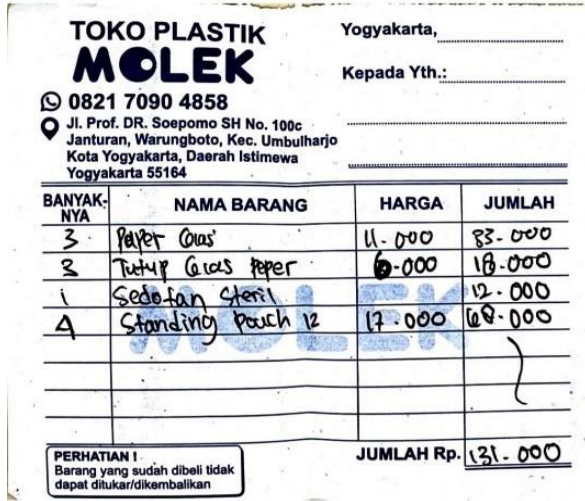 TOKO PLASTIK
MOLEK
0821 7090 4858
Jl. Prof. DR. Soepomo SH No. 100c
Janturan, Warungboto, Kec. Umbulharjo
Kota Yogyakarta, Daerah Istimewa
Yogyakarta 55164
Yogyakarta,
Kepada Yth.:
BANYAK-NYA NAMA BARANG HARGA JUMLAH
3 Paper Gelas 11.000 33.000
3 Tutup Gelas Peper 6.000 18.000
1 Sedotan Steril 12.000
4 Standing Pouch 12 17.000 68.000
MOLEK
JUMLAH Rp. 131.000
PERHATIAN !
Barang yang sudah dibeli tidak
dapat ditukar/dikembalikan